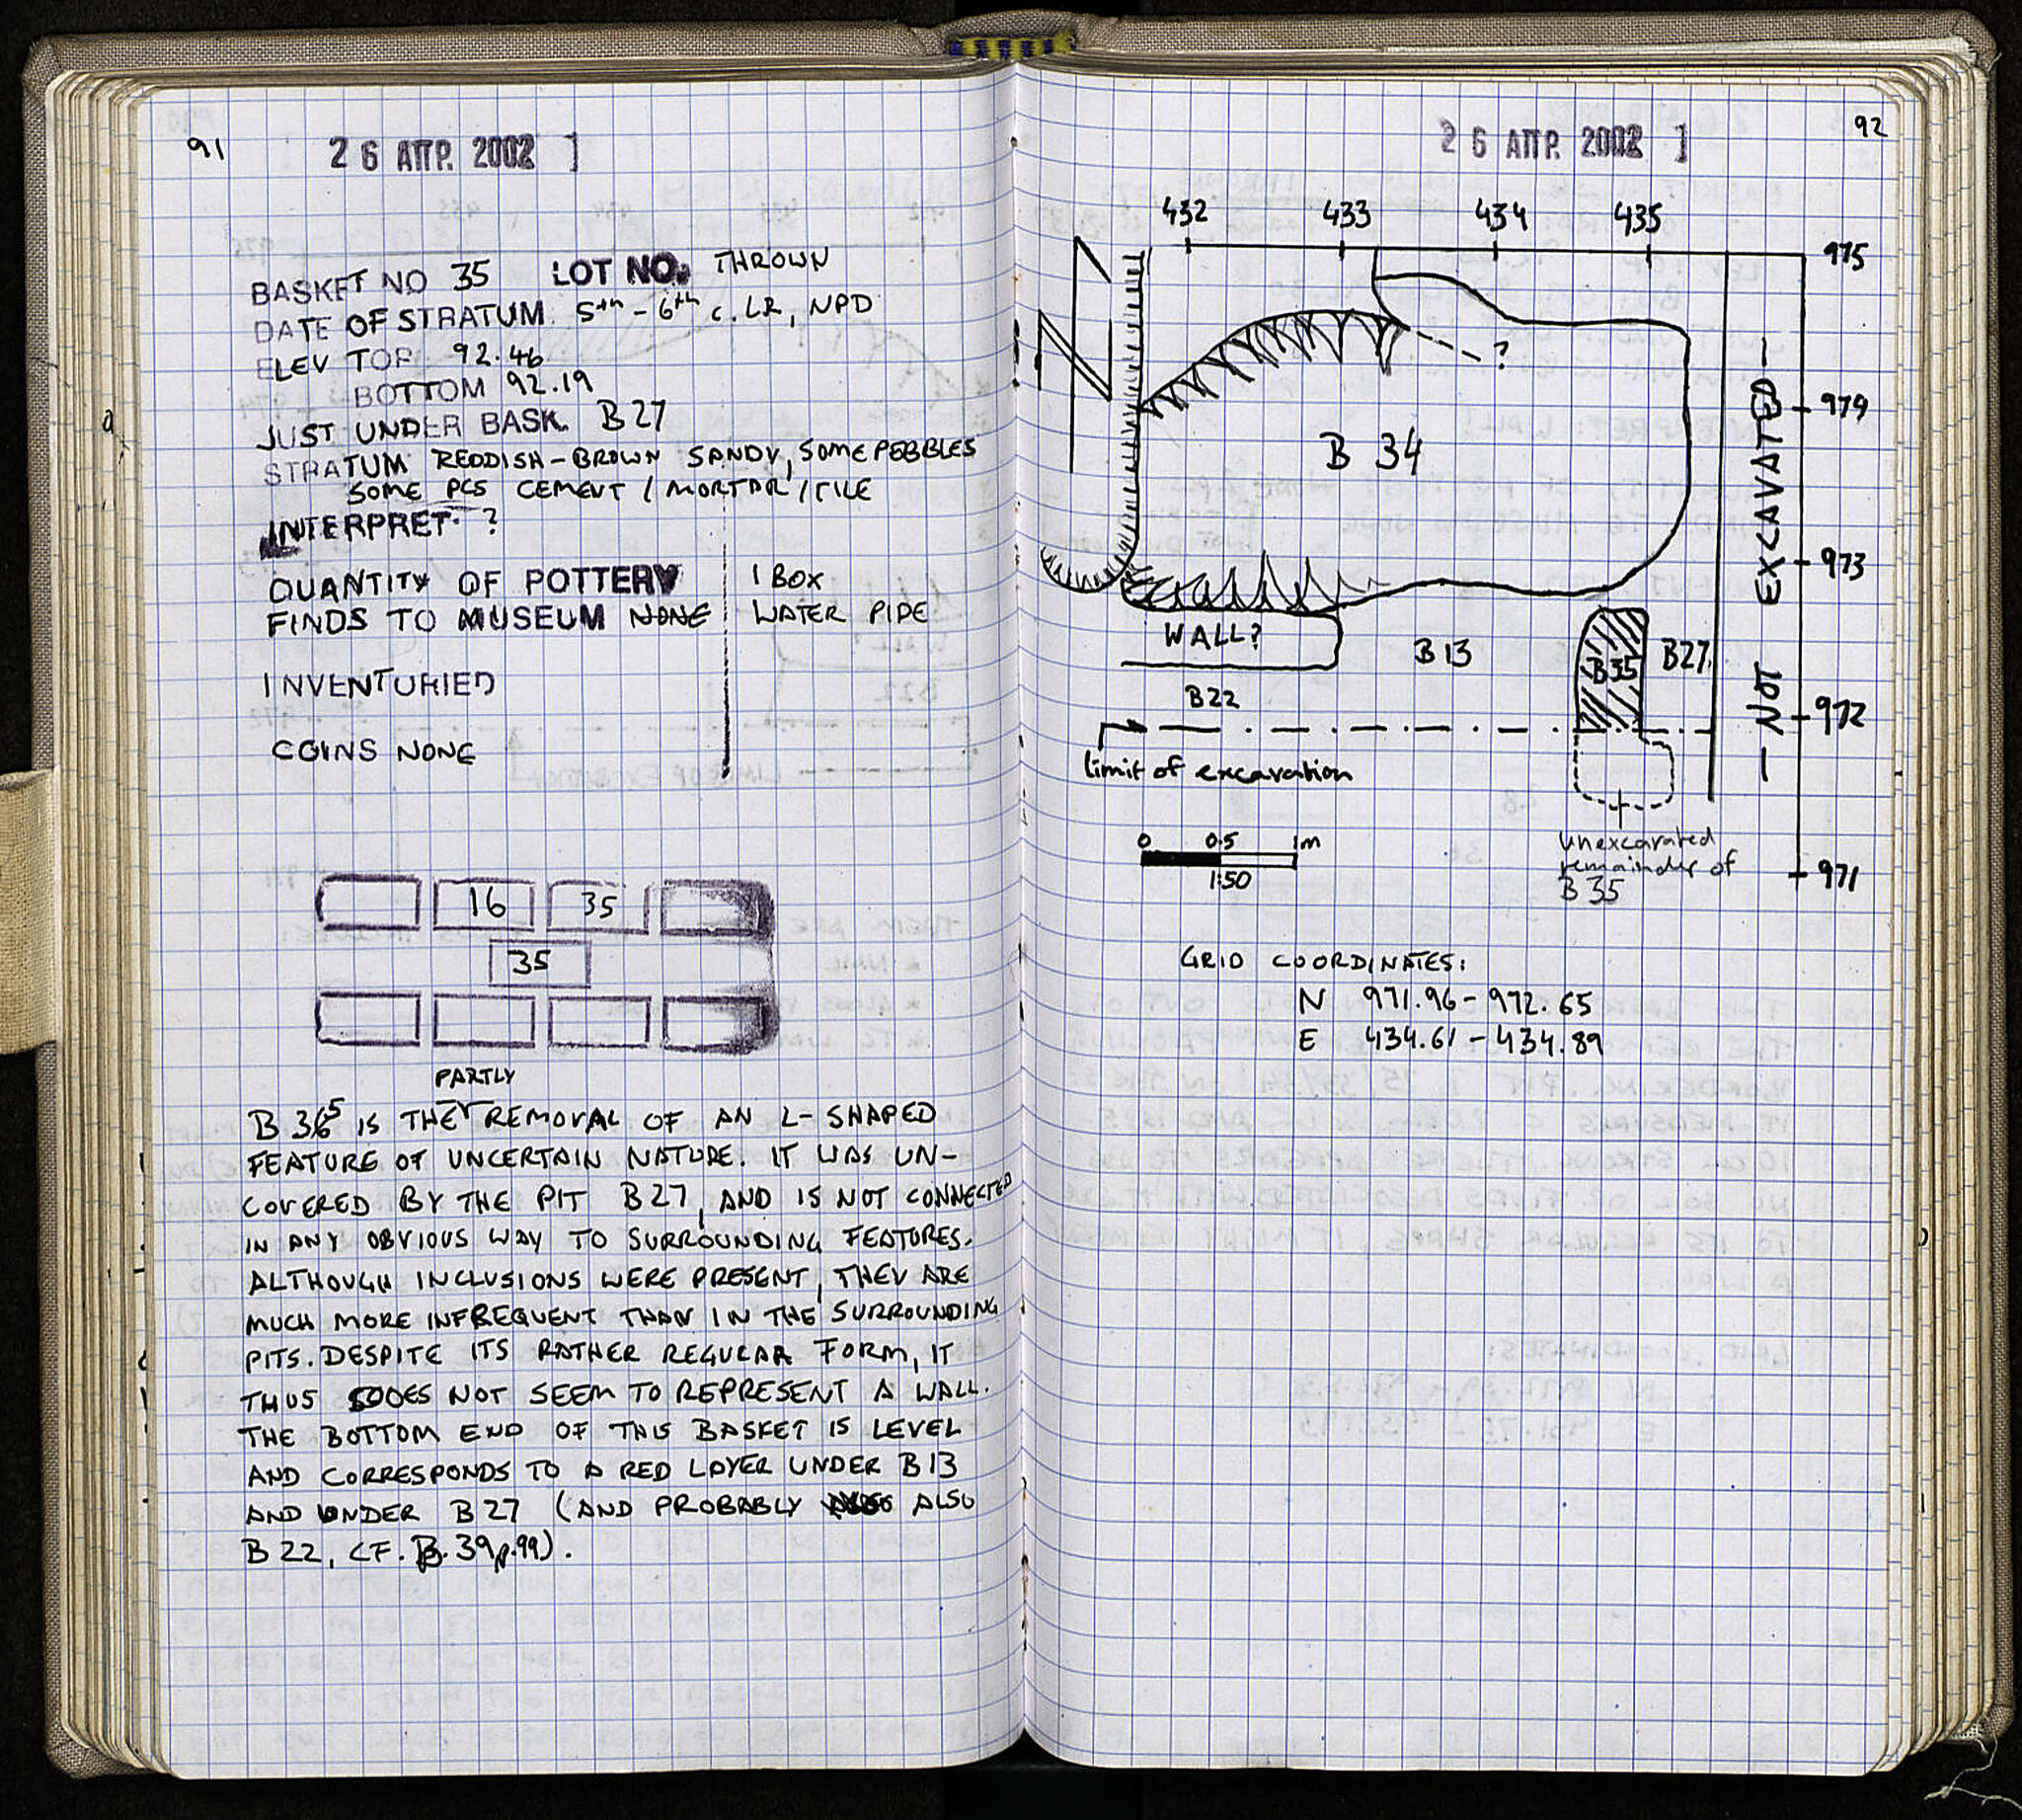 91
26 ΑΠΡ. 2002 ]
BASKET NO 35 LOT NO. THROWN
DATE OF STRATUM 5th - 6th c. LR, NPD
ELEV TOP 92.46
BOTTOM 92.19
JUST UNDER BASK. B27
STRATUM REDDISH-BROWN SANDY, SOME PEBBLES
SOME PCS CEMENT / MORTAR / TILE
INTERPRET. ?
QUANTITY OF POTTERY 1 BOX
FINDS TO MUSEUM NONE WATER PIPE
INVENTORIED
COINS NONE
16 35
35
PARTLY
B 365 IS THE REMOVAL OF AN L-SHAPED
FEATURE OF UNCERTAIN NATURE. IT WAS UN-
COVERED BY THE PIT B27, AND IS NOT CONNECTED
IN ANY OBVIOUS WAY TO SURROUNDING FEATURES.
ALTHOUGH INCLUSIONS WERE PRESENT, THEY ARE
MUCH MORE INFREQUENT THAN IN THE SURROUNDING
PITS. DESPITE ITS RATHER REGULAR FORM, IT
THUS DOES NOT SEEM TO REPRESENT A WALL.
THE BOTTOM END OF THIS BASKET IS LEVEL
AND CORRESPONDS TO A RED LAYER UNDER B13
AND UNDER B27 (AND PROBABLY ALSO
B22, CF. B. 39 p.99).
92
26 ΑΠΡ. 2002 ]
432 433 434 435
975
N
?
979
B 34
— NOT EXCAVATED —
973
WALL?
B13
B35
B27
B22
972
limit of excavation
0 0.5 1m
1:50
unexcavated
remainder of
B35
971
GRID COORDINATES:
N 971.96 - 972.65
E 434.61 - 434.89